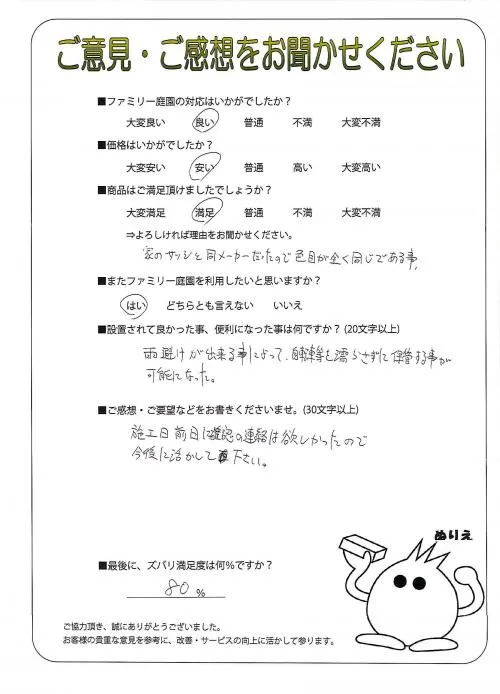 ご意見・ご感想をお聞かせください
■ファミリー庭園の対応はいかがでしたか？
大変良い 良い 普通 不満 大変不満
■価格はいかがでしたか？
大変安い 安い 普通 高い 大変高い
■商品はご満足頂けましたでしょうか？
大変満足 満足 普通 不満 大変不満
⇒よろしければ理由をお聞かせください。
家のサッシと同メーカーだったので色目が全く同じである事。
■またファミリー庭園を利用したいと思いますか？
はい どちらとも言えない いいえ
■設置されて良かった事、便利になった事は何ですか？(20文字以上)
雨避けが出来る事によって、自転車等を濡らさずに保管する事が
可能になった。
■ご感想・ご要望などをお書きくださいませ。(30文字以上)
施工日前日に確認の連絡は欲しかったので
今後に活かして下さい。
ぬりえ
■最後に、ズバリ満足度は何%ですか？
80 %
ご協力頂き、誠にありがとうございました。
お客様の貴重な意見を参考に、改善・サービスの向上に活かして参ります。